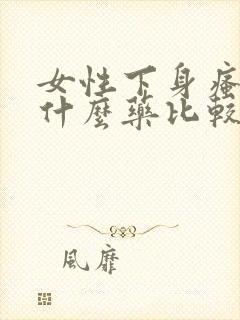 女性下身瘙
什麼藥比較
風靡